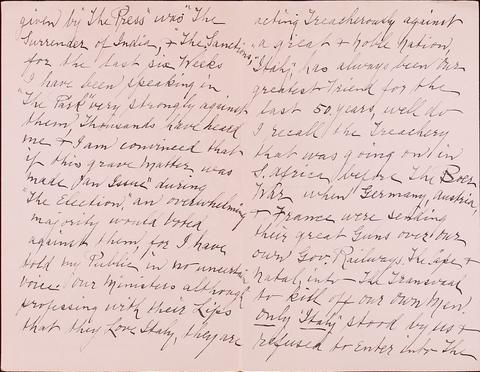 given by "The Press" was "The
Surrender of India, & "The Sanctions,"
for the last six Weeks
I have been speaking in
"The Park" very strongly against
them, Thousands have heard
me & I am convinced that
if this grave matter was
made "an Issue" during
"The Election," an overwhelming
majority would voted
against them, for I have
told my Public in no uncertain
voice our Ministers although
professing with their Lips
that they Love Italy, they are
acting Treacherously against
a great & noble Nation,
"Italy," has always been our
greatest Friend for the
last 50 years, well do
I recall the Treachery
that was going on in
S. Africa before The Boer
War when Germany, Austria,
& France were sending
their great Guns over our
own Gov. Railways. The Cape &
Natal, into The Transvaal
to kill off our own Men.
Only "Italy" stood by us &
refused to Enter into The